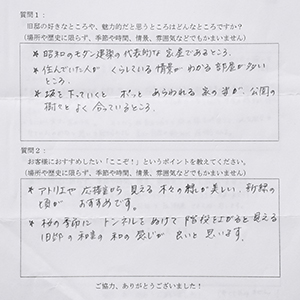 質問1:
旧邸の好きなところや、魅力的だと思うところはどんなところですか?
(場所や歴史に限らず、季節や時間、情景、雰囲気などでもかまいません)
* 昭和のモダン建築の代表的な家屋であるところ。
* 住んでいた人が くらしている情景が わかる部屋が多い
ところ。
* 坂を下っていくと ポッと あらわれる 家の姿が、公園の
樹々とよく 合っているところ。
質問2:
お客様におすすめしたい「ここぞ!」というポイントを教えてください。
(場所や歴史に限らず、季節や時間、情景、雰囲気などでもかまいません)
* アトリエや 応接室から 見える 木々の緑が美しい、新緑の
頃が おすすめです。
* 桜の季節に トンネルをぬけて 階段を上がると見える
旧邸の和室の 和の感じが 良いと 思います。
ご協力、ありがとうございました!